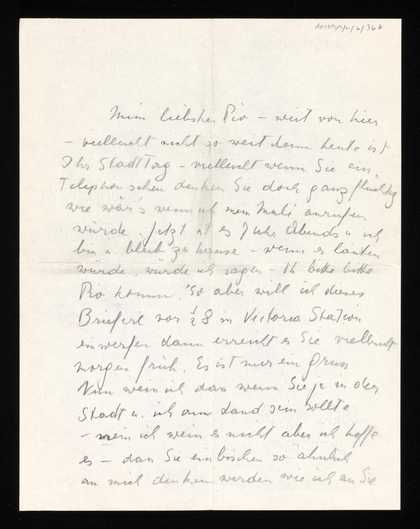 Mein liebster Pio – weit von hier
– vielleicht nicht so weit denn heute ist
Ihr Stadttag – vielleicht wenn Sie ein
Telephon sehen denken Sie doch ganz flüchtig
wie wär's wenn ich mein Mutzi anrufen
würde. Jetzt ist es 7 Uhr Abends u ich
bin u. bleib' zu hause – wenn es läuten
würde, würde ich sagen – Ih bitte bitte
Pio komm. So aber will ich dieses
Brieferl vor ½ 8 in Victoria Station
einwerfen dann erreicht es Sie vielleicht
morgen früh. Es ist nur ein Gruss
Nun weiss ich dass wenn Sie je in der
Stadt u. ich am Land sein sollte
– nein ich weiss es nicht aber ich hoffe
es – dass Sie ein bischen so ähnlich
an mich denken werden wie ich an Sie